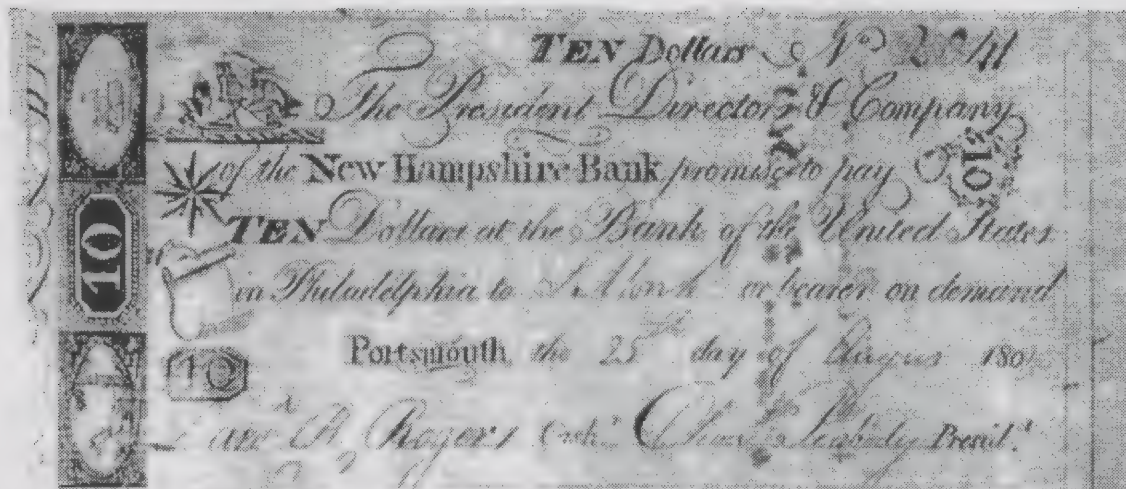 TEN Dollars No
The President Directors & Company
of the New Hampshire Bank promise to pay
$10
TEN Dollars at the Bank of the United States
10
in Philadelphia to or bearer on demand
Portsmouth the 25 day of August 180
10
Rogers Cash.r Presid.t